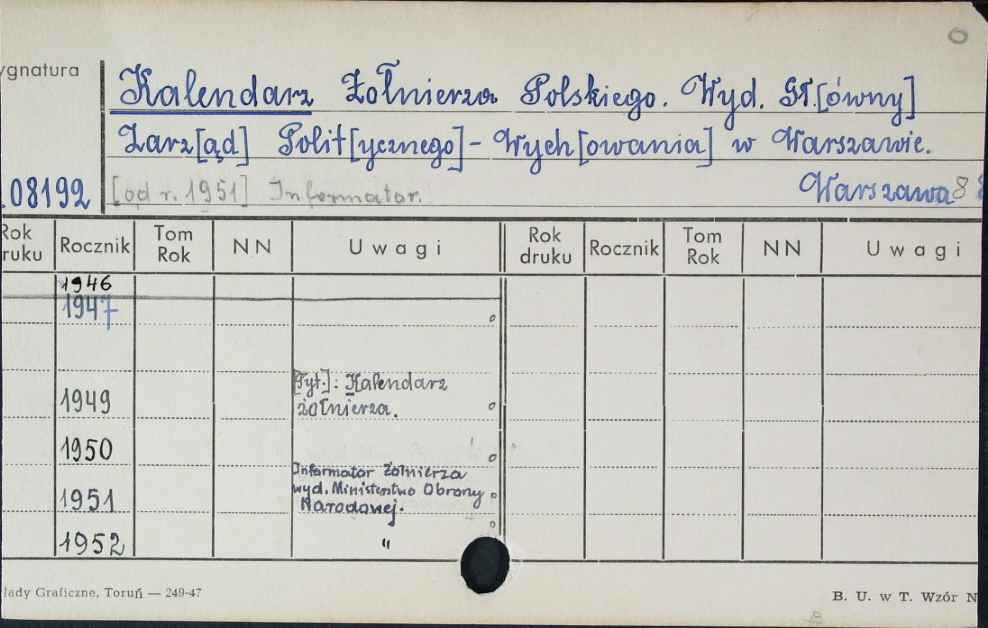 ygnatura
Kalendarz Żołnierza Polskiego. Wyd. Gł.[ówny]
Zarz[ąd] Polit[ycznego]-Wych[owania] w Warszawie.
08192 [od r. 1951] Informator. Warszawa 8
Rok druku Rocznik Tom Rok NN Uwagi Rok druku Rocznik Tom Rok NN Uwagi
1946
1947
[Tyt.]: Kalendarz
1949 żołnierza.
1950
Informator Żołnierza
wyd. Ministerstwo Obrony
1951 Narodowej.
1952 "
łady Graficzne, Toruń — 249-47 B. U. w T. Wzór N